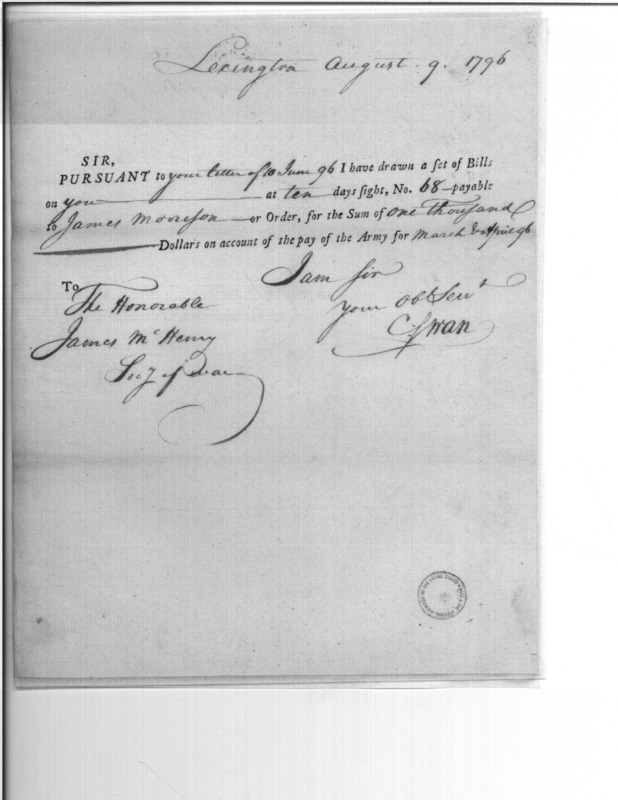 Lexington August 9. 1796
SIR,
PURSUANT to your letter of 10 June 96 I have drawn a ſet of Bills
on you at ten days ſight, No. 68 payable
to James Morrison or Order, for the Sum of One thousand
Dollars on account of the pay of the Army for March & April 96
I am Sir
your Obt Servt
C Swan
To
The Honorable
James McHenry
Secy of War